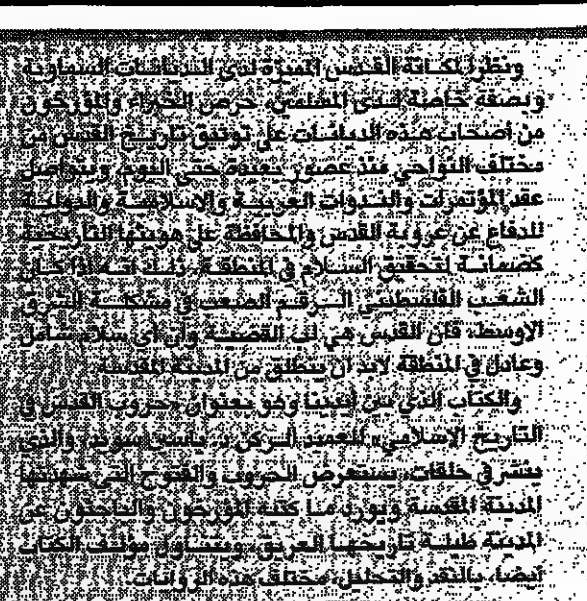 ونظرا لمكانة القدس المميزة لدى الديانات السماوية
وبصفة خاصة لدى المسلمين، حرص الخبراء والمؤرخون
من أصحاب هذه الديانات على توثيق تاريخ القدس من
مختلف النواحي منذ عصور بعيدة حتى اليوم، ويتواصل
عقد المؤتمرات والندوات العربية والاسلامية والدولية
للدفاع عن عروبة القدس والمحافظة على هويتها التاريخية
كضمانة لتحقيق السلام في المنطقة، ذلك انه اذا كان
الشعب الفلسطيني الرقم الصعب في مشكلة الشرق
الاوسط، فان القدس هي لب القضية وان أي سلام شامل
وعادل في المنطقة لابد ان ينطلق من المدينة المقدسة.
والكتاب الذي بين ايدينا وهو بعنوان «حروب القدس في
التاريخ الاسلامي» للعميد الركن د. ياسين سويد، والذي
ينشر في حلقات، يستعرض الحروب والفتوح التي شهدتها
المدينة المقدسة ويورد ما كتبه المؤرخون والباحثون عن
المدينة طيلة تاريخها العريق، ويتناول مؤلف الكتاب
أيضا، بالنقد والتحليل، مختلف هذه الروايات.